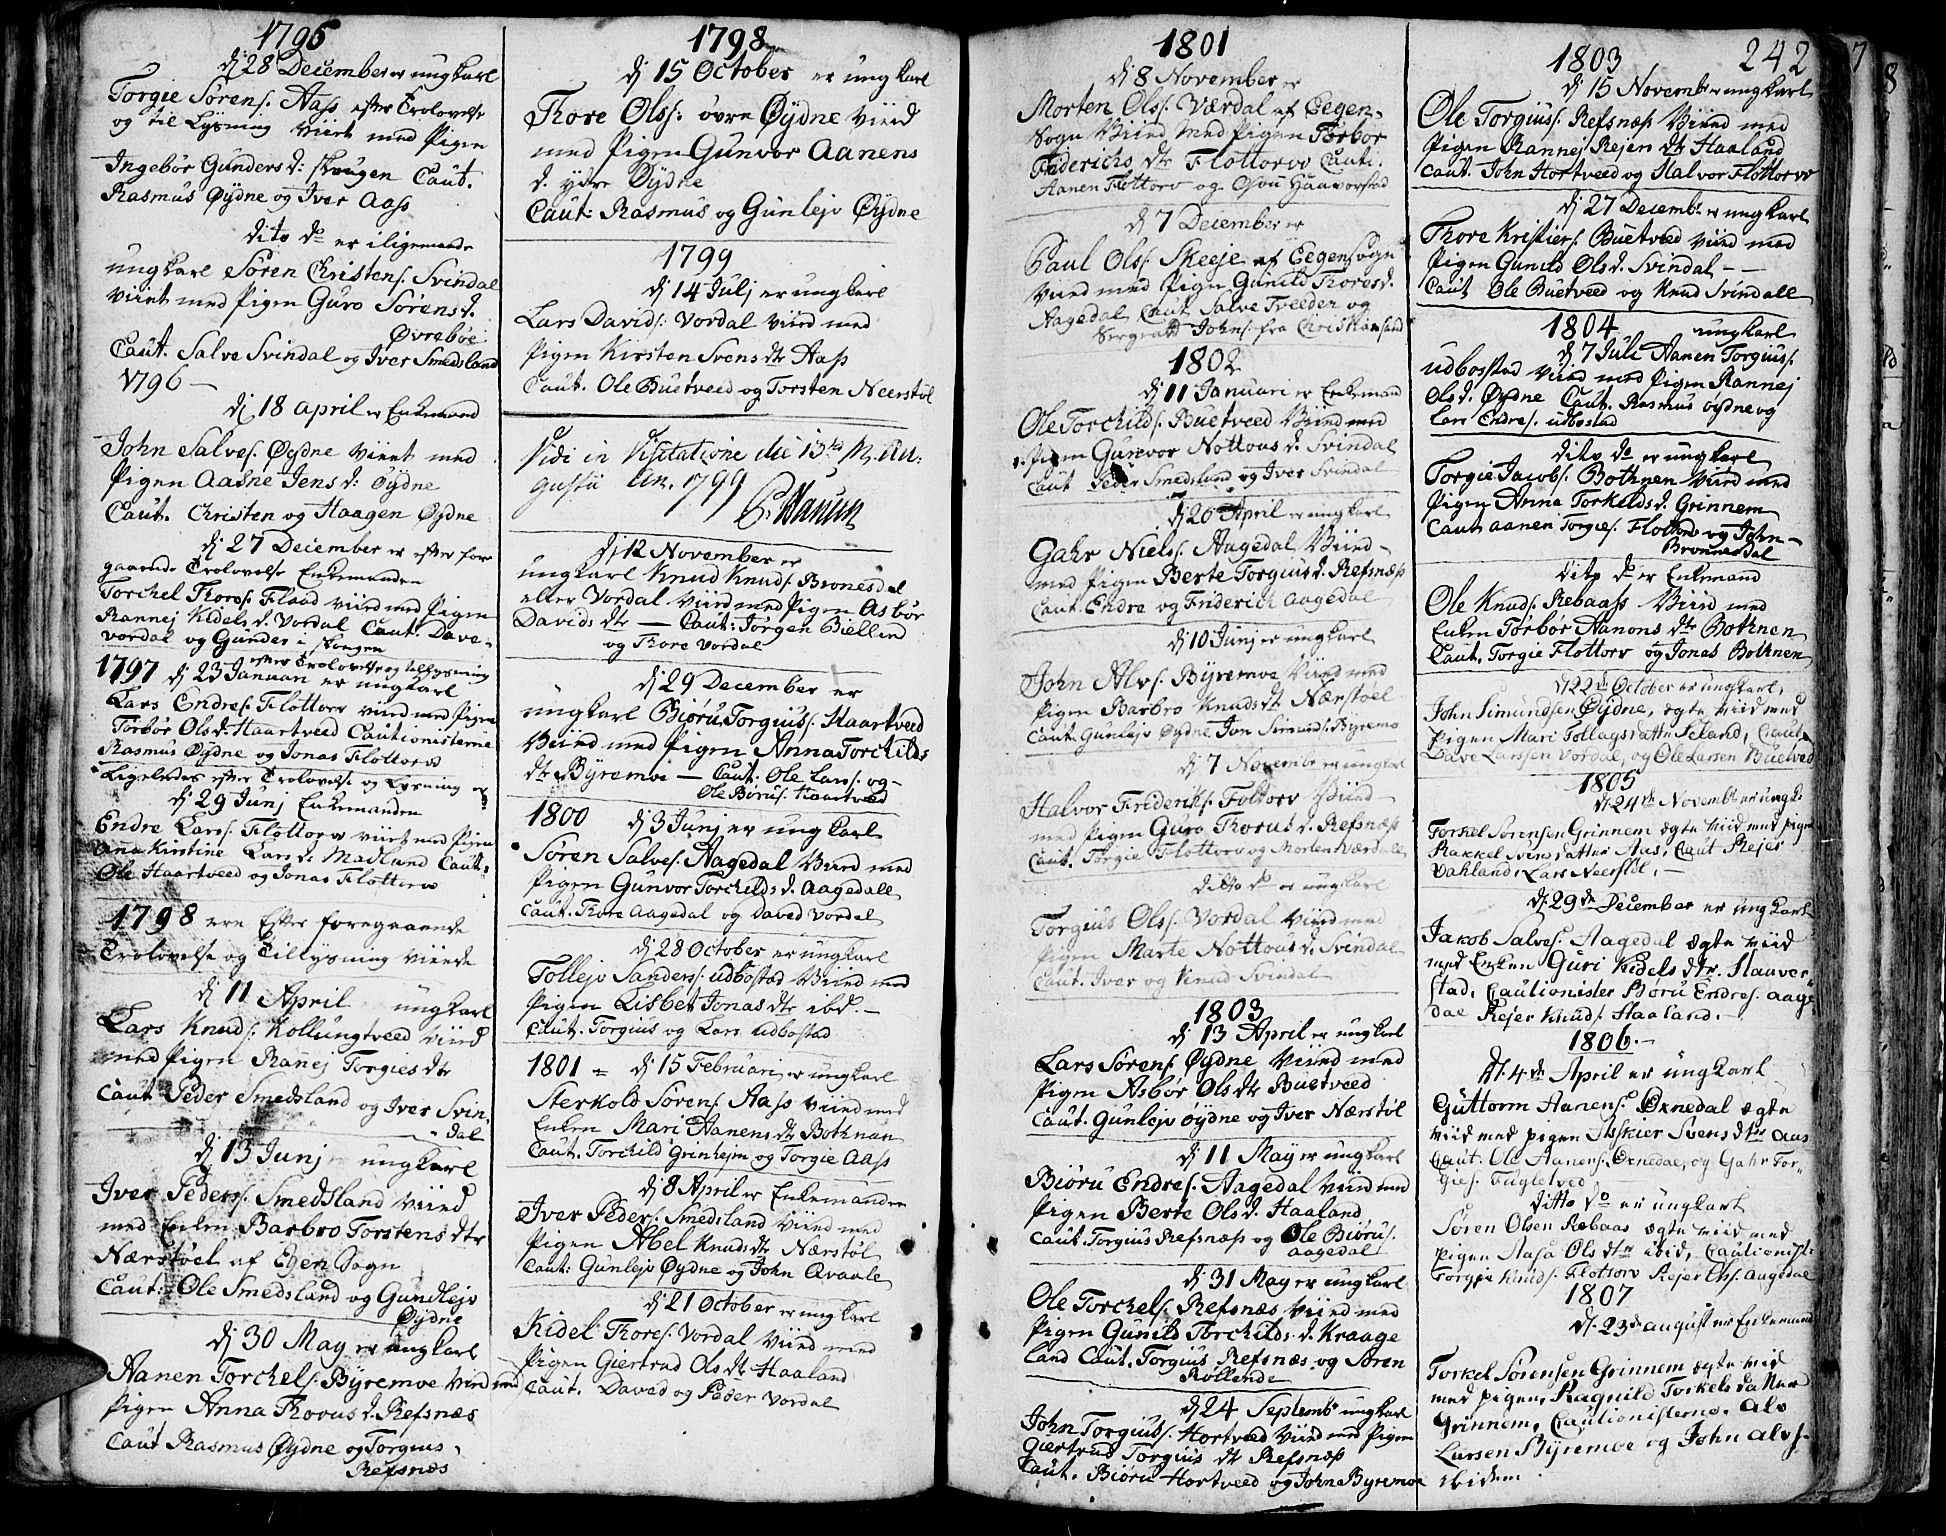 1795
dj 28 December er ungkarl
Torgie Sørens. Aass efter Trolovelse
og til Lysning Viiet med Pigen
Ingebør Gunders d: skougen Caut.
Rasmus Øydne og Iver Aass
dito do er iligemaade
ungkarl Søren Christens. Svindal
viiet med Pigen Guro Sørens d.
Øvrebøe
Caut. Salve Svindal og Iver Smedsland
1796 —
dj 18 april er Enkemand
John Salves. Øydne Viiet med
Pigen Aasne Jens d: Øydne
Caut. Christen og Haagen Øydne
dj 27 December er efter for
gaaende Trolovelse Enkemanden
Torchel Thores. Flaad viied med Pigen
Rannej Kidels d. Vordal Caut. Dave
Vordal og Gunder i skougen
1797 efter Trolovelse og tillysning
dj 23 Januari er ungkarl
Lars Endres. Flottorv viied med Pigen
Torbør Ols d. Haartveed Cautionisterne
Rasmus Øydne og Jonas Flottorv
Ligeledes efter Trolovelse og Lysning er
dj 29 Junj Enkemanden
Endre Larss. Flottorv viiet med Pigen
Ana Kirstine Lars d. Madland Caut.
Ole Haartveed og Jonas Flottorv
1798 ere Efter foregaaende
Trolovelse og Tillysning viiede
dj 11 April ungkarl
Lars Knuds. Kollungtveed Viied
med Pigen Ranej Torgies dtr
Caut Peder Smedsland og Iver Svin
dal
dj 13 Junj ungkarl
Iver Peders. Smedsland Viied
med Enken Barbro Torstens dtr
Nærstøel af Egen Sogn
Caut: Ole Smedsland og Gundlejv
Øydne
dj 30 May er ungkarl
Aanen Torchels. Byremoe Viied med
Pigen Anna Thorus d. Refsnæs
Caut Rasmus Øydne og Torgius
Refsnæs
1798
dj 15 October er ungkarl
Thore Olss. øvre Øydne Viied
med Pigen Gunvor Aanens
d. ydre Øydne
Caut: Rasmus og Gunlejv Øydne
1799
dj 14 Julj er ungkarl
Lars Davids. Vordal Viied med
Pigen Kirsten Svens dtr Aass
Caut. Ole Buetveed og Torsten Neerstøl
Vidi in Visitatione die 13tis M. Au:
gusti An. 1799
P. Hansen
dj 12 November er
ungkarl Knud Knuds. Bronesdal
eller Vordal Viied med Pigen Asbør
Davids dtr — Caut: Jørgen Biellen
og Thore Vordal
dj 29 December er
ungkarl Biøru Torgius. Haartveed
Viied med Pigen Anna Torchilds
dtr Byremoe — Caut. Ole Larss. og
Ole Børus. Haartveed
1800 dj 3 Junj er ungkarl
Søren Salves. Aagedal Viied med
Pigen Gunvor Torchilds d. Aagedall
Caut. Thore Aagedal og David Vordal
dj 28 October er ungkarl
Tollejv Sanders. udbostad Viied med
Pigen Lisbet Jonas dtr ibd. —
Caut. Torgius og Lars udbostad
1801 = dj 15 Februari er ungkarl
Sterkold Sørens. Aass Viied med
Enken Mari Aanens dtr Bothnen
Caut. Torchild Grinhejm og Torgie Aass
dj 8 April er Enkemanden
Iver Peders. Smedsland Viied med
Pigen Abel Knuds dtr Nærstøl
Caut: Gunlejv Øydne og John Qvaale
dj 21 October er ungkarl
Kidel Thores. Vordal Viied med
Pigen Giertrud Ols dtr Haaland
Caut. David og Peder Vordal
1801
dj 8 November er
Morten Olss. Værdal af Eegen
Sogn Viied med Pigen Tørbor
Friderichs dtr Flottorv Caut.
Aanen Flottorv og Haavorstad
dj 7 December er
Paul Olss. Skeeje af Eegen Sogn
Viied med Pigen Gunild Thores d.
Aagedal Caut Salve Tveeden og
Sergeant Johns. fra Christiansand
1802
dj 11 Januari er Enkemand
Ole Torchilds. Buetveed Viied med
Pigen Gunvor Nottous d. Svindal
Caut Peder Smedsland og Iver Svindal
dj 20 April er ungkarl
Gahr Niels. Aagedal Viied
med Pigen Berte Torgius d. Refsnæss
Caut. Endre og Friderich Aagedal
dj 10 Junj er ungkarl
John Alvs. Byremoe Viied med
Pigen Barbro Knuds dtr Nærstoel
Caut. Gunlejv Øydne Jon Simuns. Byremo
dj 7 Novembr er ungkarl
Halvor Frideriks. Foltorv Viied
med Pigen Guro Thorus d. Refsnæss
Caut. Torgie Flottorv og Morten Værdal
Ditto do er ungkarl
Torgius Olss. Vordal Viied med
Pigen Marte Nottous d. Svindal
Caut. Iver og Knud Svindal
1803
dj 13 April er ungkarl
Lars Sørens. Øydne Viied med
Pigen Asbør Ols dtr Buetveed
Caut. Gunlejv øydne og Iver Nærstøl
dj 11 May er ungkarl
Biøru Endres. Aagedal Viied med
Pigen Berte Ols d. Haaland
Caut. Torgius Refsnæss og Ole Biørus.
Aagedal
dj 31 May er ungkarl
Ole Torchels. Refsnæs Viied med
Pigen Gunild Torchilds d. Kraage
land Caut. Torgius Refsnæs og Søren
Røllende
dj 24 Septembr ungkarl
John Torgius. Hortveed Viied med Pigen
Giertrud Torgius dtr Refsnæss
Caut. Biøru Hortveed og John Byremoe
242
1803
dj 15 Novembr er ungkarl
Ole Torgius. Refsnæss Viied med
Pigen Rannej Rejers dtr Haaland
Caut. John Hortveed og Halvor Flottorv
dj 27 Decembr er ungkarl
Thore Kristiers. Buetveed viied med
Pigen Gunild Ols d. Svindal — —
Caut Ole Buetveed og Knud Svindall
1804 ungkarl
dj 7 Juli Aanen Torgius.
udbostad Viied med Pigen Rannej
Ols d. Øydne Caut. Rasmus øydne og
Lars Endres. udbostad
dito do er ungkarl
Torgie Jacobs. Bothnen Viied med
Pigen Anna Torkelds d. Grinnem
Caut Aanen Torgies. Flottorv og John
Bronnesdal
dito do er Enkemand
Ole Knuds. Rebaass Viied med
Enken Tørbør Aanons dtr Bothnen
Caut. Torgie Flottorv og Jonas Bothnen
d 22de October er ungkarl,
John Simundsen Øydne, ægte viid med
Pigen Mari Tollagsdatter Seland, Caut
Dave Larssen Vordal, og Ole Larsen Buetved
1805
d. 24de Novembr er ungk:
Torkel Sørensen Grinnem ægte viid med Pigen
Rakkel Svensdatter Aas, Caut Rejer
Vahland, Lars Neerstøl. —
dj 29de December er ungkarl
Jakob Salves. Aagedal ægte viid
med Enken Guri Kidels dtr. Haaver
stad, Cautionister Børu Endres. Aage
dal Rejer Knuds. Haaland. —
1806. —
d. 4de April er ungkarl
Guttorm Aanens. Ørnedal ægte
viid med pigen Asskier Svens dtr Aas
Caut. Ole Aanens. Ørnedal, og Gahr Tor
gies. Fugletved
Ditto do er ungkarl
Søren Olsen Rebaas ægte viid med
Pigen Aasa Ols dtr ibid, Cautionist:
Torgie Knuds. Flottorv Rejer Olss. Aagedal
1807
d. 23de august er Enkemand
Torkel Sørensen Grinnem ægte viid
med pigen, Ragnild Torkelsdatter
Grinnem, Cautionisterne. Alv
Larsen Byremoe og John Alvs.
ibidem